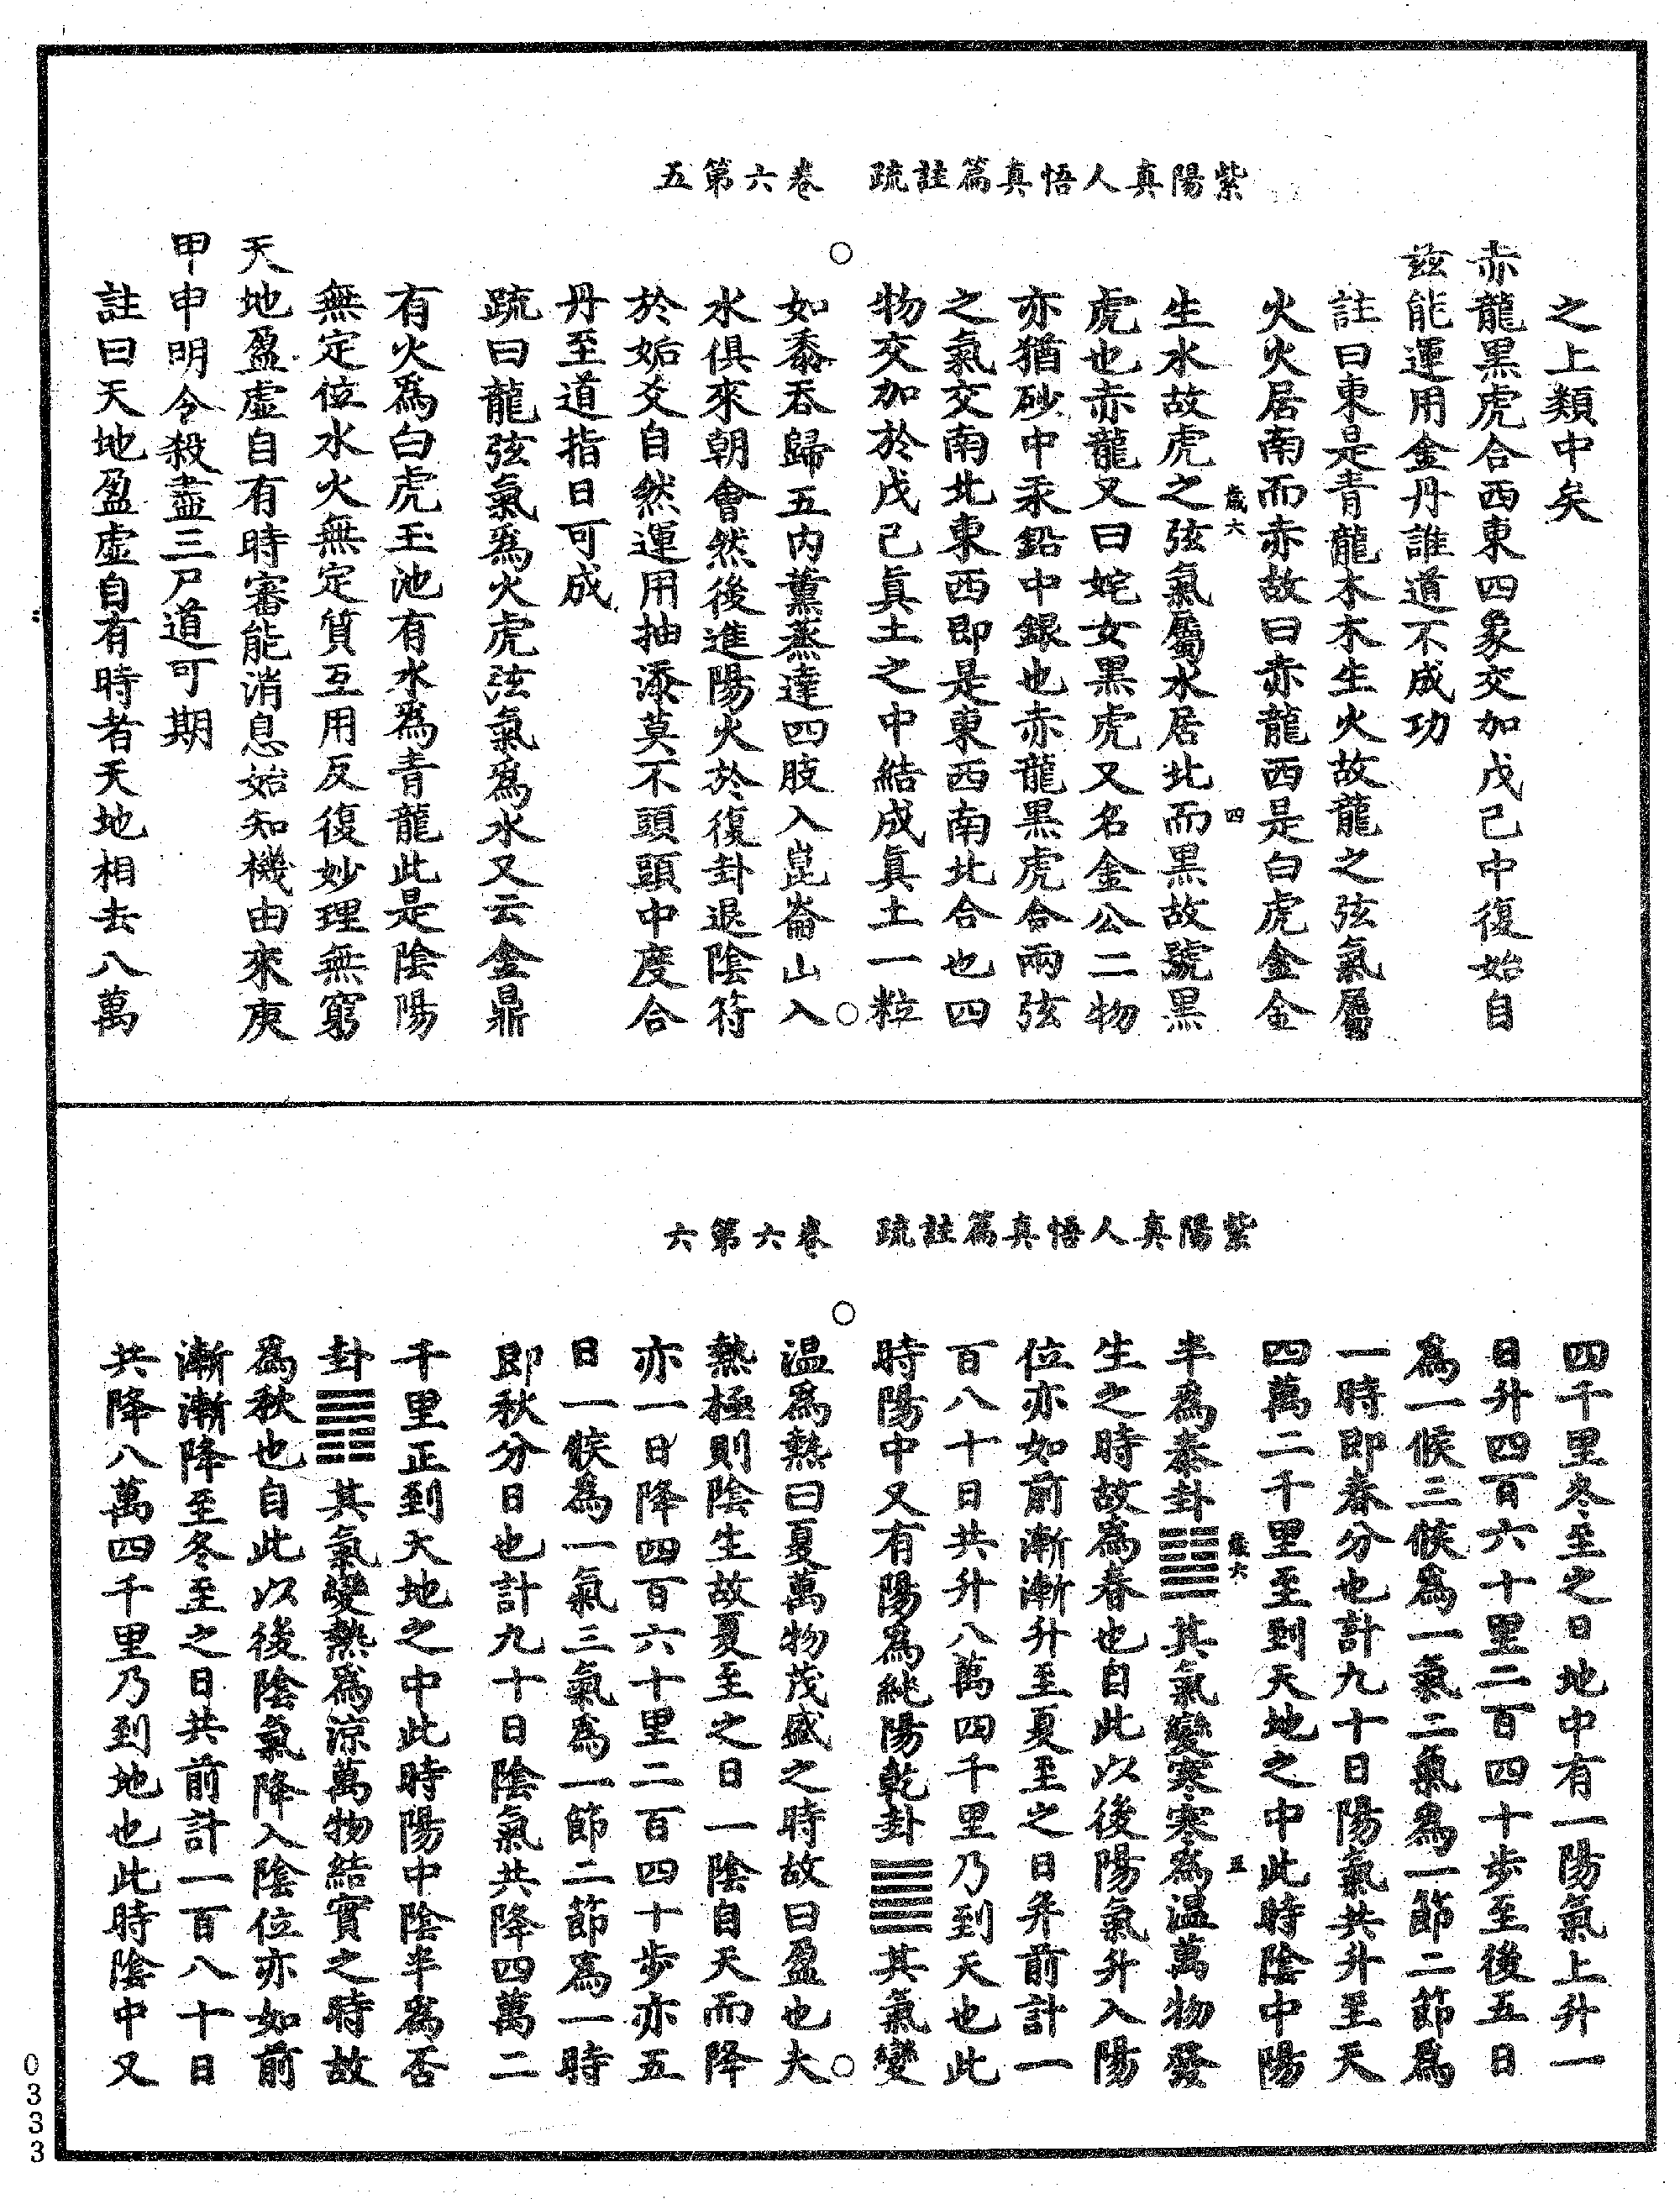 紫陽真人悟真篇註疏　卷六第五
之上類中矣
赤龍黑虎合西東四象交加戊己中復始自
茲能運用金丹誰道不成功
註曰東是青龍木木生火故龍之弦氣屬
火火居南而赤故曰赤龍西是白虎金金
生水故虎之弦氣屬水居北而黑故號黑
歲六　四
虎也赤龍又曰姹女黑虎又名金公二物
亦猶砂中汞鉛中銀也赤龍黑虎合兩弦
之氣交南北東西即是東西南北合也四
物交加於戊己真土之中結成真土一粒
如黍吞歸五內薰蒸達四肢入崑崙山入
水俱來朝會然後進陽火於復卦退陰符
於姤爻自然運用抽添莫不頭頭中度合
丹至道指日可成
疏曰龍弦氣爲火虎弦氣爲水又云金鼎
有火爲白虎玉池有水爲青龍此是陰陽
無定位水火無定質互用反復妙理無窮
天地盈虛自有時審能消息始知機由來庚
甲申明令殺盡三尸道可期
註曰天地盈虛自有時者天地相去八萬
紫陽真人悟真篇註疏　卷六第六
四千里冬至之日地中有一陽氣上升一
日升四百六十里二百四十步至後五日
爲一候三候爲一氣二氣爲一節二節爲
一時即春分也計九十日陽氣共升至天
四萬二千里至到天地之中此時陰中陽
半爲泰卦䷊其氣變寒寒爲温萬物發
歲六　五
生之時故爲春也自此以後陽氣升入陽
位亦如前漸漸升至夏至之日并前計一
百八十日共升八萬四千里乃到天也此
時陽中又有陽爲純陽乾卦䷀其氣變
温爲熱曰夏萬物茂盛之時故曰盈也大
熱極則陰生故夏至之日一陰自天而降
亦一日降四百六十里二百四十步亦五
日一候爲一氣三氣爲一節二節爲一時
即秋分日也計九十日陰氣共降四萬二
千里正到天地之中此時陽中陰半爲否
卦䷋其氣變熱爲凉萬物結實之時故
爲秋也自此以後陰氣降入陰位亦如前
漸漸降至冬至之日共前計一百八十日
共降八萬四千里乃到地也此時陰中又
0333